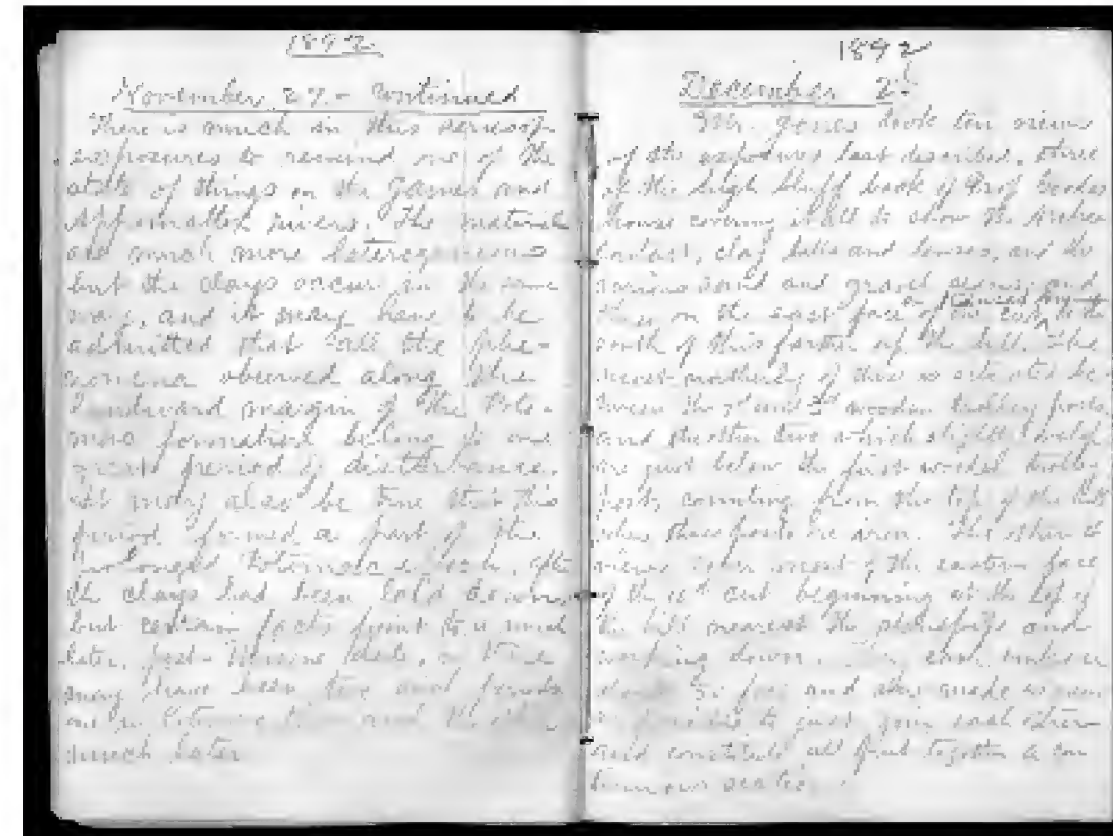 1892
November 27.- Continued
There is much in this series of
exposures to remind one of the
state of things on the James and
Appomattox rivers. The materials
are much more heterogeneous
but the clays occur in the same
way, and it may have to be
admitted that all the phe-
nomena observed along the
landward margin of the Poto-
mac formation belong to one
great period of disturbance.
It may also be true that this
period formed a part of the
prolonged Potomac epoch, after
the clays had been laid down
but certain facts point to a much
later, post- Miocene date, or there
may have been two such periods
one in Potomac time and the other
much later
1892
December 2d
Mr. Jones took ten views
of the exposures last described, three
of the high bluff back of Prof
house covering it all to show the
contact, clay balls and lenses, and the
various sand and gravel seams, and
on the east face of the cut, to the
south of this portion of the hill. The
most northerly of these is situated be-
tween the 2d and 3d wooden trolley posts,
and the other two which slightly
are just below the first wooden trolley
post, counting from the top of the hill
when these posts are seen. The other
views were of the eastern face
of the 16th cut beginning at the top of
the hill nearest the and
working down. They each embrace
about 50 feet and
to just join each other
and constitute all put together a con-
tinuous section.